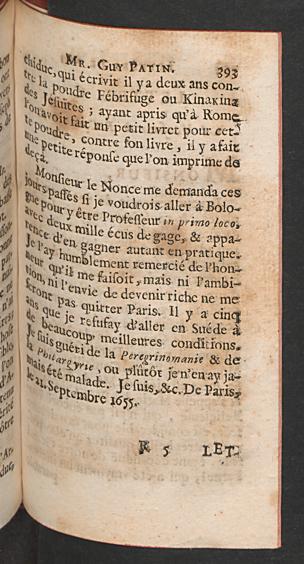 MR. GUY PATIN. 393
chiduc, qui écrivit il y a deux ans con-
tre la poudre Fébrifuge ou Kinakina
des Jésuites ; ayant apris qu'à Rome
l'on avoit fait un petit livret pour cet-
te poudre, contre son livre, il y a fait
une petite réponse que l'on imprime de
deçà.
Monsieur le Nonce me demanda ces
jours passés si je voudrois aller à Bolo-
gne pour y être Professeur in primo loco,
avec deux mille écus de gage, & appa-
rence d'en gagner autant en pratique.
Je l'ay humblement remercié de l'hon-
neur qu'il me faisoit, mais ni l'ambi-
tion, ni l'envie de devenir riche ne me
feront pas quitter Paris. Il y a cinq
ans que je refusay d'aller en Suéde à
de beaucoup meilleures conditions.
Je suis guéri de la Peregrinomanie & de
la Philargyrie, ou plûtôt je n'en ay ja-
mais été malade. Je suis, &c. De Paris,
le 21. Septembre 1655.
R 5 LET